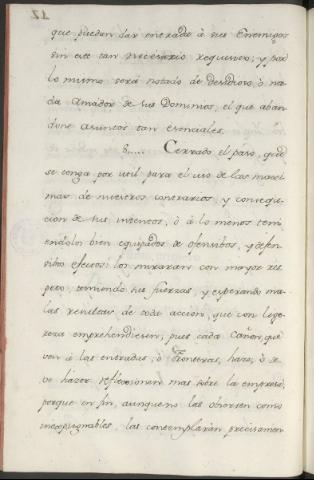 17
que puedan dar entrada à sus Enemigos
sin este tan necesario requisito; y por
lo mismo será notado de desidioso, ò na-
da Amador de sus Dominios, el que aban-
done asuntos tan esenciales.
8..... Cerrado el paso, que
se tenga por util para el uso de las maxi-
mas de nuestros contrarios, y consegu-
cion de sus intentos, ò à lo menos teni-
endolos bien equipados de ofensibos, y defen-
sibos efectos; los miraran con mayor res-
peto, temiendo sus fuerzas, y esperando ma-
las resultas de toda accion, que con lige-
reza emprehendiesen; pues cada Cañon, que
ven à las entradas, ò Fronteras, hace, ò de-
ve hazer reflexionen mas sobre la empresa,
porque en fin, aunque no las observen como
inexpugnables, las contemplarán precisamen